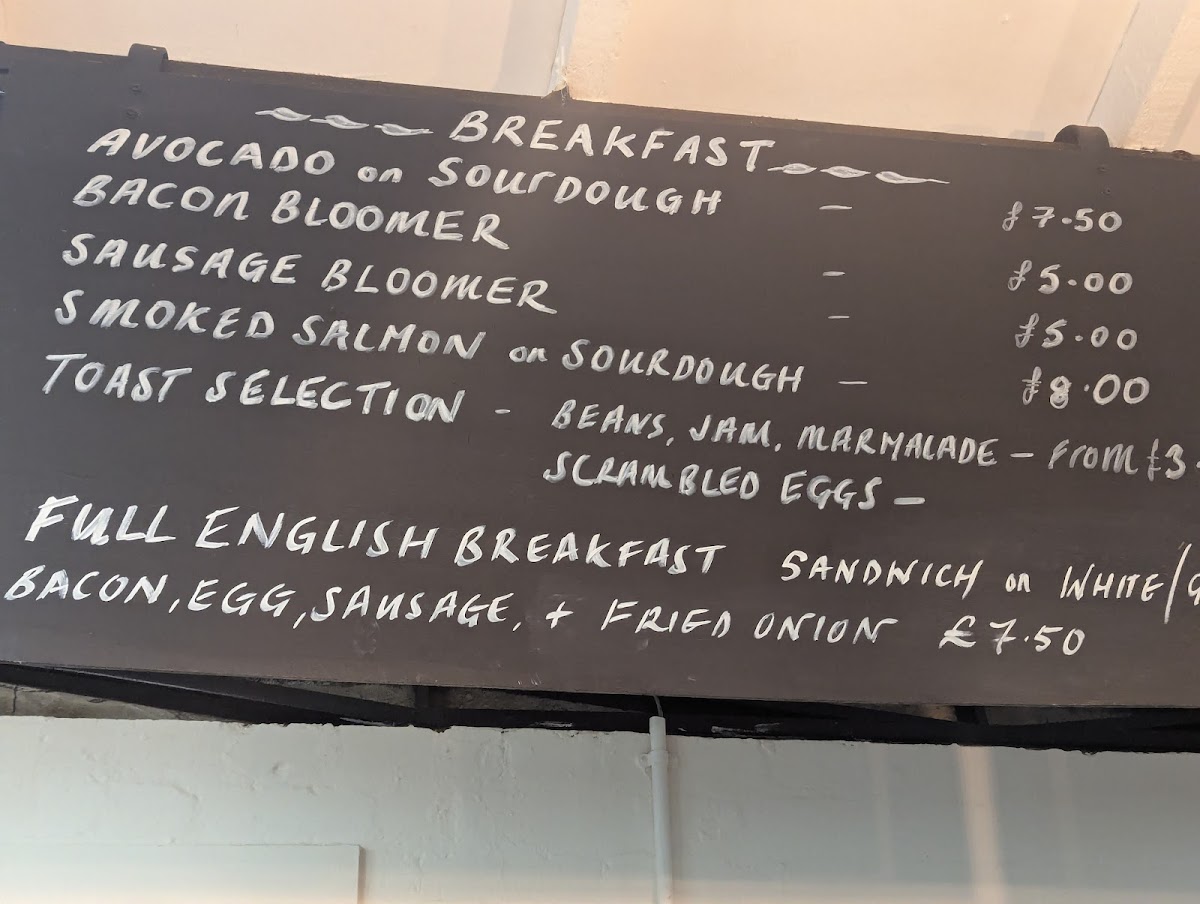 BREAKFAST
AVOCADO on SOURDOUGH - £7.50
BACON BLOOMER - £5.00
SAUSAGE BLOOMER - £5.00
SMOKED SALMON on SOURDOUGH - £8.00
TOAST SELECTION - BEANS, JAM, MARMALADE - FROM £3.
SCRAMBLED EGGS -
FULL ENGLISH BREAKFAST SANDWICH on WHITE/
BACON, EGG, SAUSAGE, + FRIED ONION £7.50